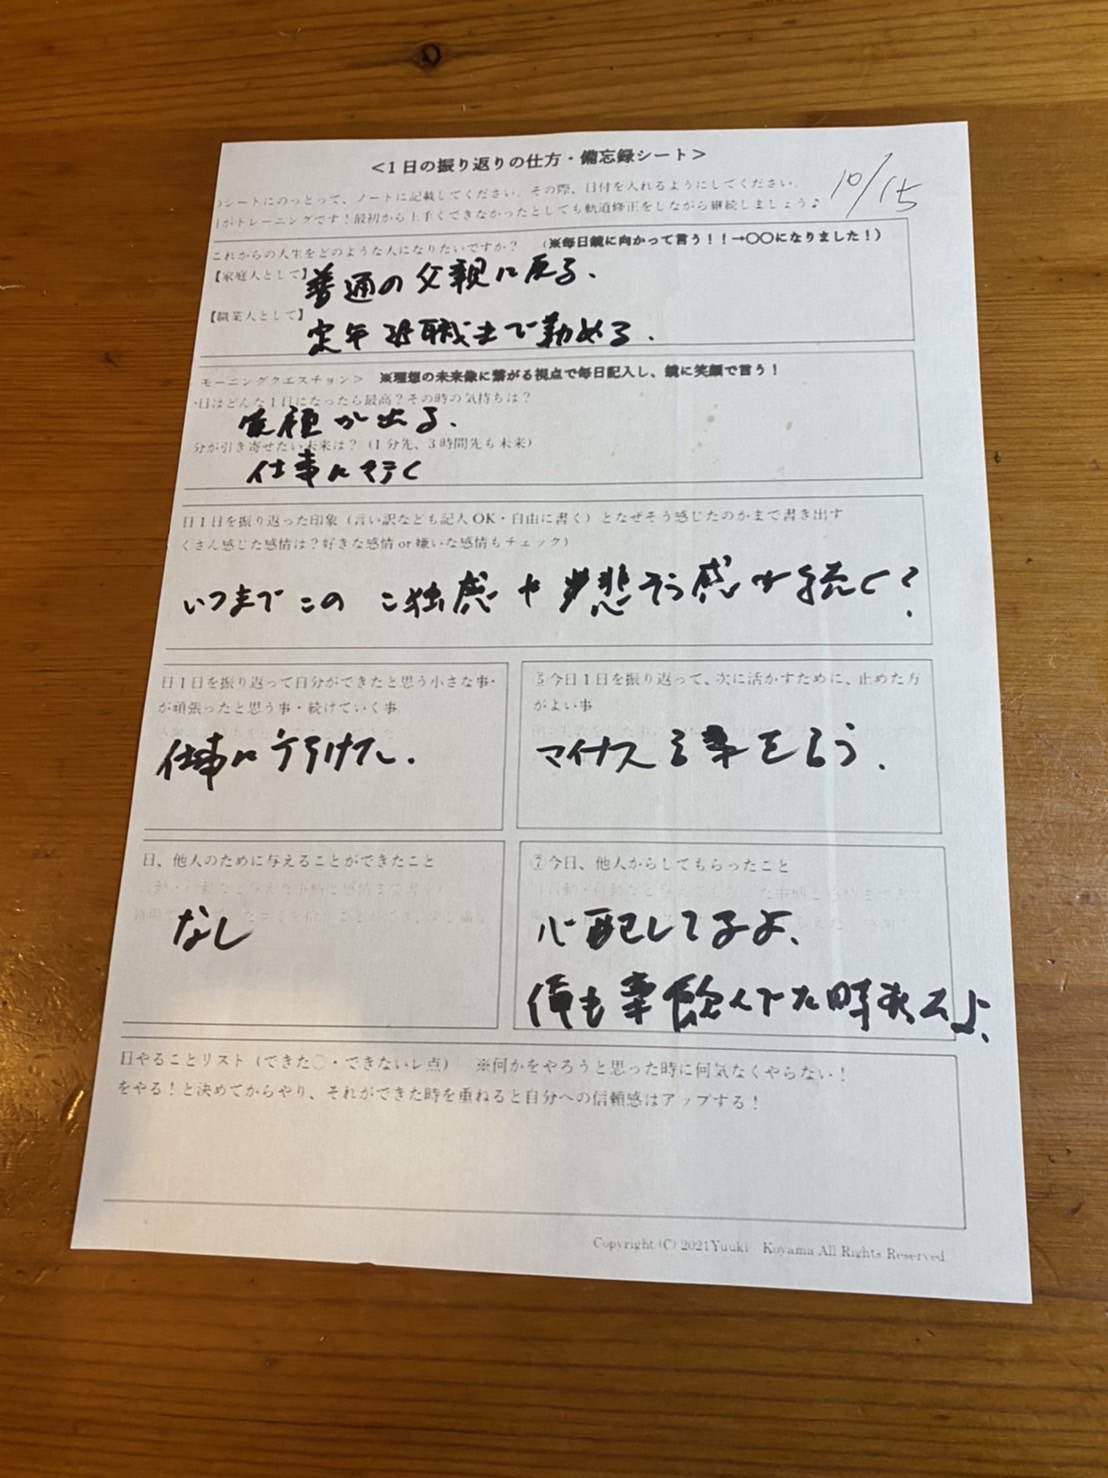 <1日の振り返りの仕方・備忘録シート>
10/15
シートにのっとって、ノートに記載してください。その際、日付を入れるようにしてください。
がトレーニングです！最初から上手くできなかったとしても軌道修正をしながら継続しましょう♪
これからの人生をどのような人になりたいですか？ （※毎日鏡に向かって言う！！→〇〇になりました！）
【家庭人として】普通の父親に戻る.
【職業人として】定年退職まで勤める.
モーニングクエスチョン＞ ※理想の未来像に繋がる視点で毎日記入し、鏡に笑顔で言う！
日はどんな1日になったら最高？その時の気持ちは？
が出る.
分が引き寄せたい未来は？（1分先、3時間先も未来）
仕事に行く
日1日を振り返った印象（言い訳なども記入OK・自由に書く）となぜそう感じたのかまで書き出す
くさん感じた感情は？好きな感情or嫌いな感情もチェック）
いつまでこの こ独感や 悲そう感が続く？
日1日を振り返って自分ができたと思う小さな事・
が頑張ったと思う事・続けていく事
仕事に行けた.
⑤今日1日を振り返って、次に活かすために、止めた方
がよい事
マイナスる事を言う.
日、他人のために与えることができたこと
なし
⑦今日、他人からしてもらったこと
心配してるよ、
俺も薬飲んでた時あるよ、
日やることリスト（できた〇・できないレ点） ※何かをやろうと思った時に何気なくやらない！
をやる！と決めてからやり、それができた時を重ねると自分への信頼感はアップする！
Copyright (C) 2021Yuuki Koyama All Rights Reserved.